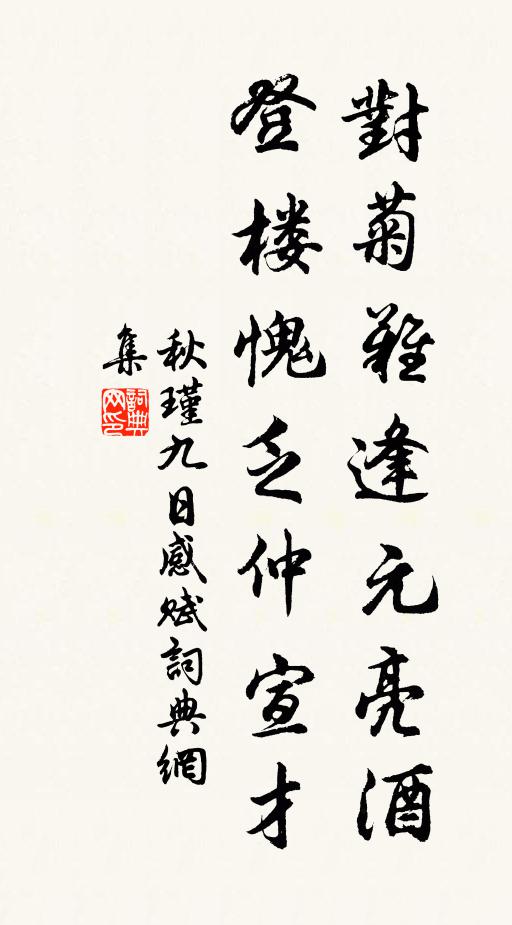 對菊難逢元亮酒
登楼愧乏仲宣才
秋瑾九日感賦詞典網
集
詞典
网印